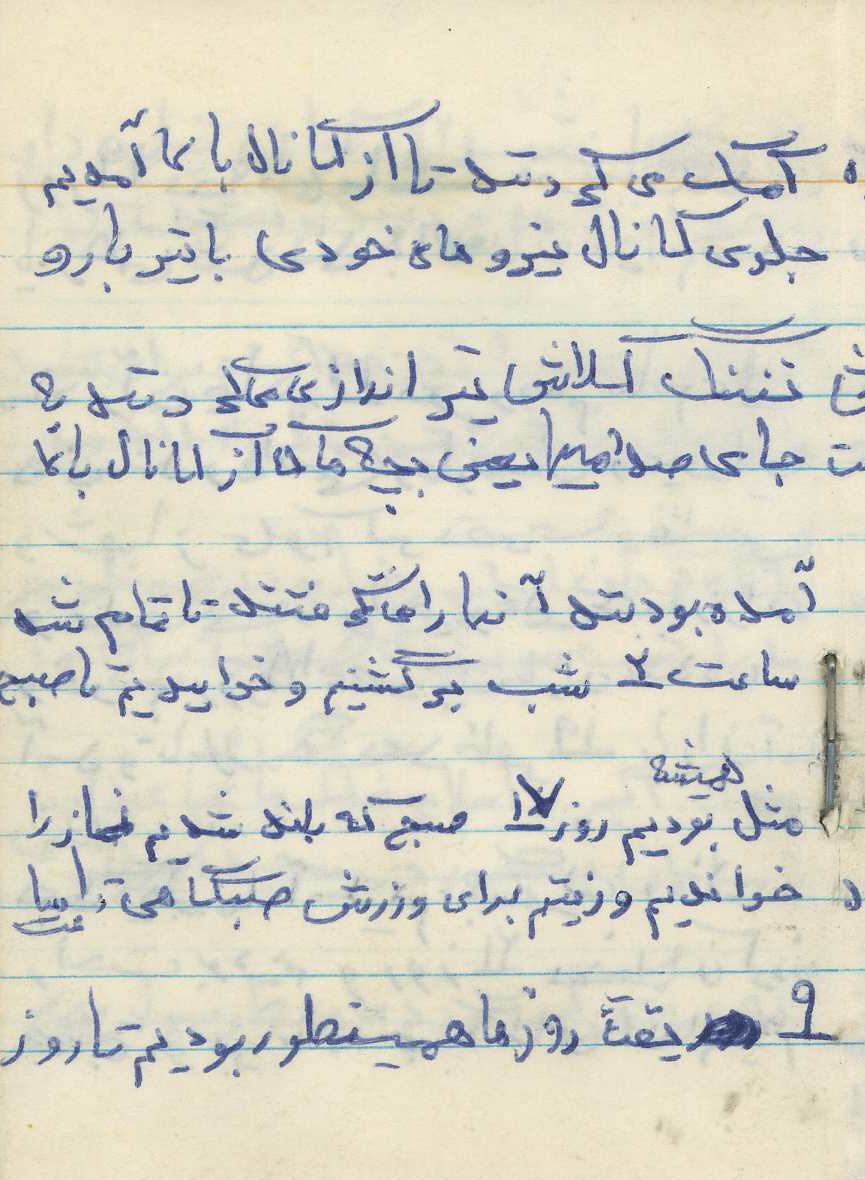 کمک می کردند تا از کانال با ما آمدیم
جلوی کانال نیرو های خودی با تیر بارو
تفنگ کلاش تیر اندازی می کردند به
جای صدامیها یعنی بچه ها که از کانال با ما
آمده بودند آنها را می گفتند تا تمام شد
ساعت ۲ شب برگشتیم و خوابیدیم تا صبح
همیشه
مثل بودیم روز ۱۷ صبح که بلند شدیم نماز را
خواندیم و رفتیم برای ورزش صبگاهی تا ساعت
۹ بقیه روز ما همینطور بودیم تا روز